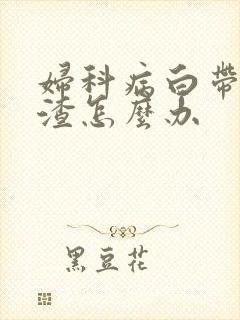 婦科病白帶
渣怎麼办
黑豆花